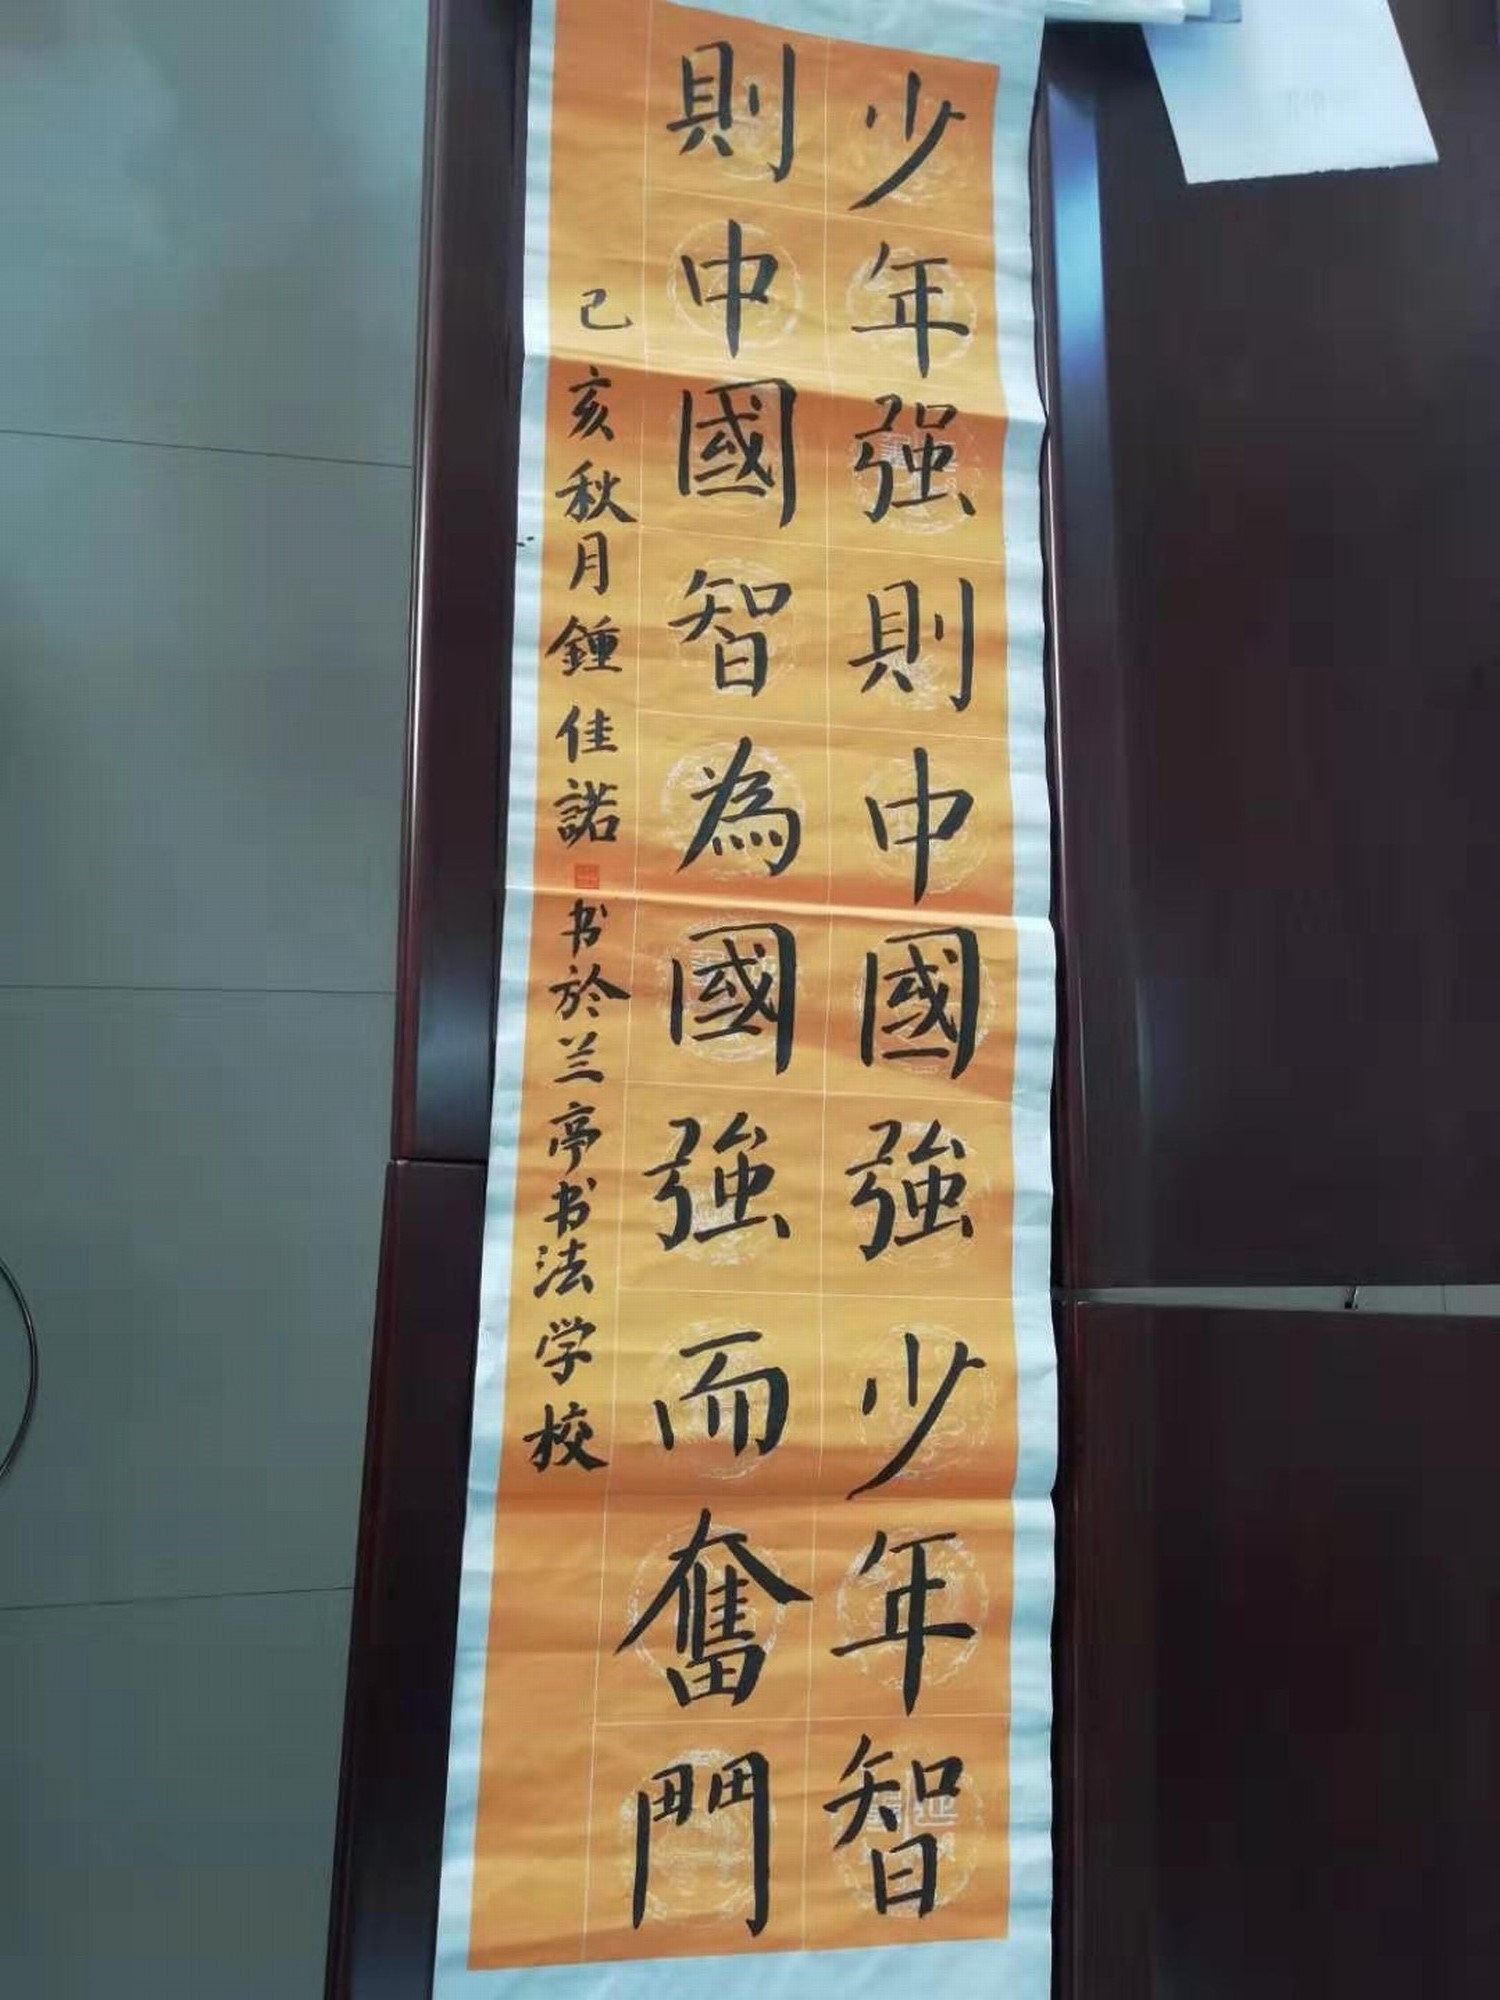 少年强則中國強少年智
則中國智為國強而奮鬥
己亥秋月鍾佳諾书於兰亭书法学校